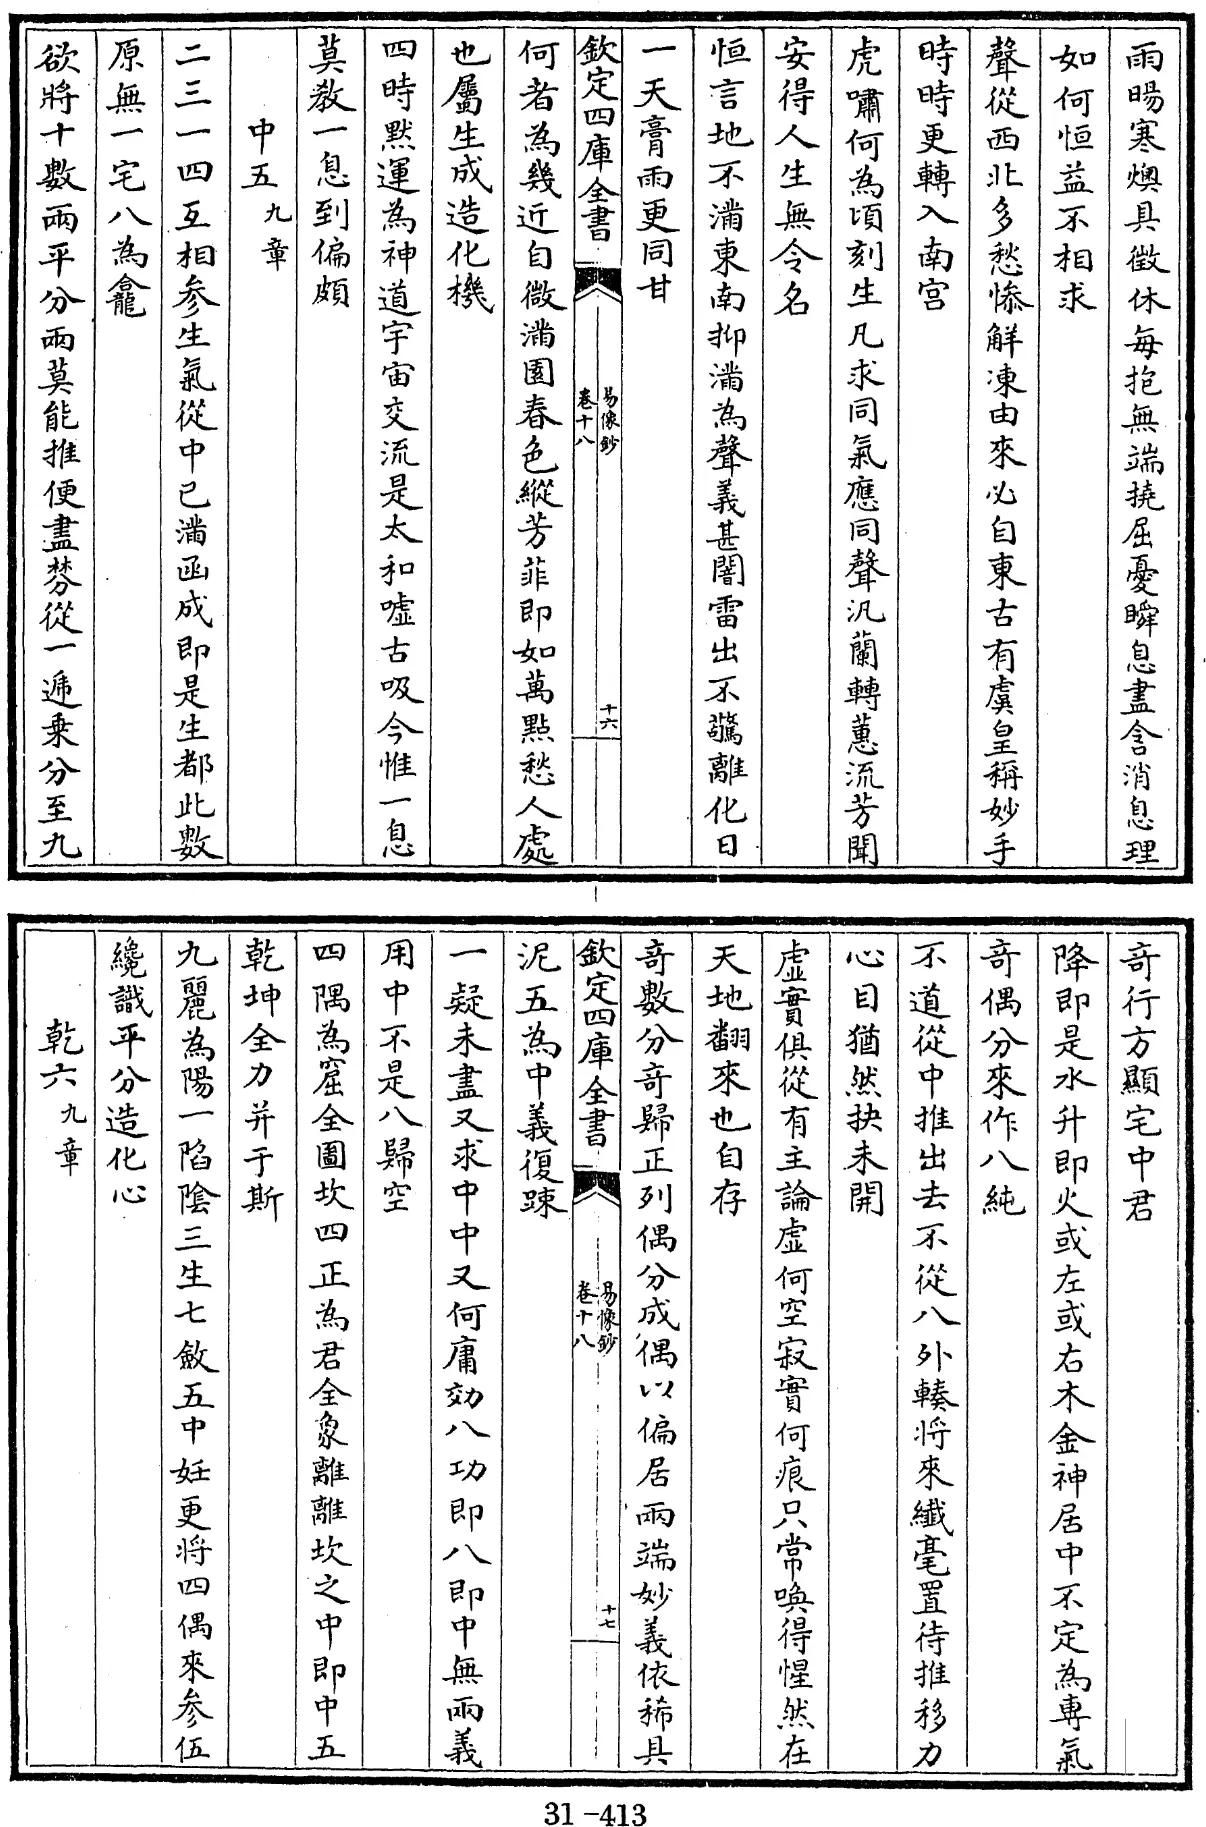 雨暘寒燠具徴休每抱無端撓屈憂瞬息盡含消息理
如何恒益不相求
聲從西北多愁慘解凍由來必自東古有虞皇稱妙手
時時更轉入南宫
虎嘯何為頃刻生凡求同氣應同聲汎蘭轉蕙流芳聞
安得人生無令名
恒言地不滿東南抑滿為聲義甚闇雷出不驚離化日
一天膏雨更同甘
欽定四庫全書
易像鈔
卷十八
十六
何者為幾近自微滿園春色縱芳菲即如萬點愁人處
也屬生成造化機
四時黙運為神道宇宙交流是太和噓古吸今惟一息
莫教一息到偏頗
中五九章
二三一四互相参生氣從中已滿函成即是生都此數
原無一宅八為龕
欲將十數兩平分兩莫能推便盡棼從一遞乗分至九
奇行方顯宅中君
降即是水升即火或左或右木金神居中不定為專氣
奇偶分來作八純
不道從中推出去不從八外輳将來纎毫置待推移力
心目猶然抉未開
虚實俱從有主論虚何空寂實何痕只常喚得惺然在
天地翻來也自存
奇數分奇歸正列偶分成偶以偏居兩端妙義依稀具
欽定四庫全書
易像鈔
卷十八
十七
泥五為中義復踈
一疑未盡又求中中又何庸効八功即八即中無兩義
用中不是八歸空
四隅為窟全圖坎四正為君全象離離坎之中即中五
乾坤全力并于斯
九麗為陽一陷陰三生七斂五中妊更将四偶來参伍
纔識平分造化心
乾六九章
31-413